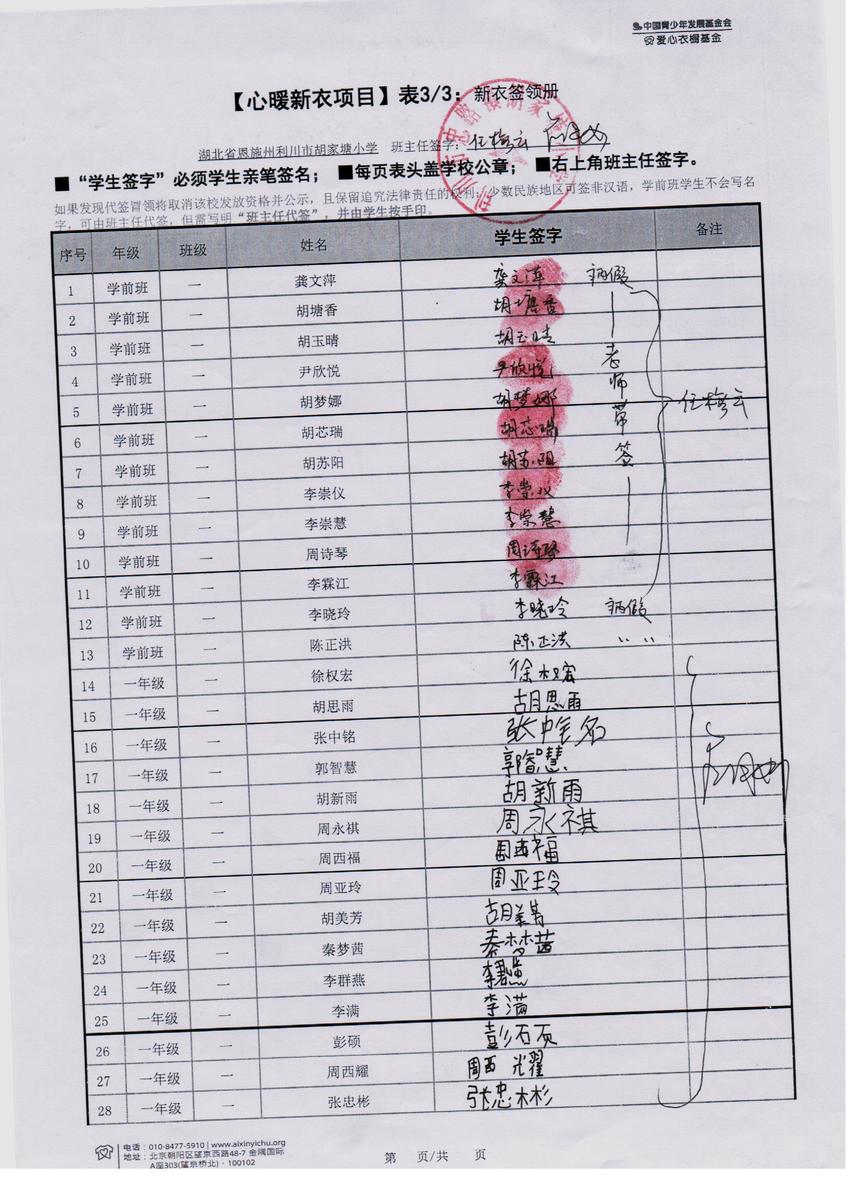 中国青少年发展基金会
爱心衣橱基金
【心暖新衣项目】表3/3：新衣签领册
湖北省恩施州利川市胡家塘小学 班主任签字：任梅云
■“学生签字”必须学生亲笔签名； ■每页表头盖学校公章； ■右上角班主任签字。
如果发现代签冒领将取消该校发放资格并公示，且保留追究法律责任的权利；少数民族地区可签非汉语，学前班学生不会写名
字，可由班主任代签，但需写明“班主任代签”，并由学生按手印。
序号 年级 班级 姓名 学生签字 备注
1 学前班 一 龚文萍 龚文萍 病假
2 学前班 一 胡塘香 胡塘香
3 学前班 一 胡玉晴 胡玉晴
4 学前班 一 尹欣悦 尹欣悦
5 学前班 一 胡梦娜 胡梦娜
6 学前班 一 胡芯瑞 胡芯瑞
7 学前班 一 胡苏阳 胡苏阳
8 学前班 一 李崇仪 李崇仪
9 学前班 一 李崇慧 李崇慧
10 学前班 一 周诗琴 周诗琴
11 学前班 一 李霖江 李霖江
12 学前班 一 李晓玲 李晓玲 病假
13 学前班 一 陈正洪 陈正洪 〃 〃
老师带签
任梅云
14 一年级 一 徐权宏 徐权宏
15 一年级 一 胡思雨 胡思雨
16 一年级 一 张中铭 张中铭
17 一年级 一 郭智慧 郭智慧
18 一年级 一 胡新雨 胡新雨
19 一年级 一 周永祺 周永祺
20 一年级 一 周西福 周西福
21 一年级 一 周亚玲 周亚玲
22 一年级 一 胡美芳 胡美芳
23 一年级 一 秦梦茜 秦梦茜
24 一年级 一 李群燕 李群燕
25 一年级 一 李满 李满
26 一年级 一 彭硕 彭硕
27 一年级 一 周西耀 周西耀
28 一年级 一 张忠彬 张忠彬
电话：010-8477-5910 | www.aixinyichu.org
地址：北京朝阳区望京西路48-7 金隅国际
A座303(望京桥北)·100102
第 页/共 页